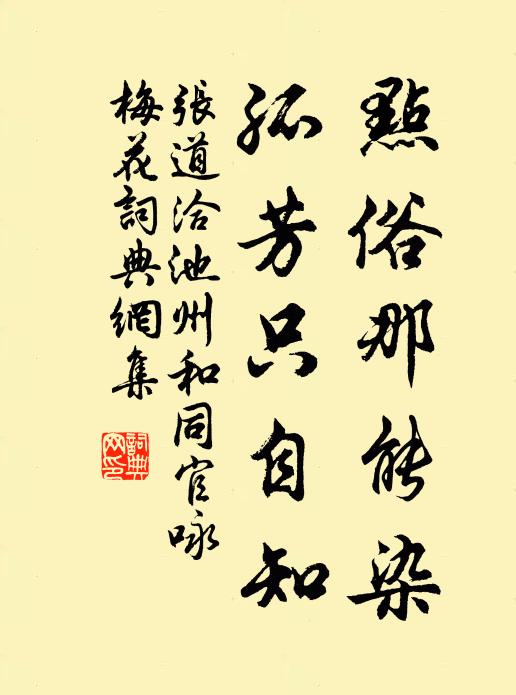 點俗那能染
孤芳只自知
張道洽池州和同官咏
梅花詞典網集
詞典網印